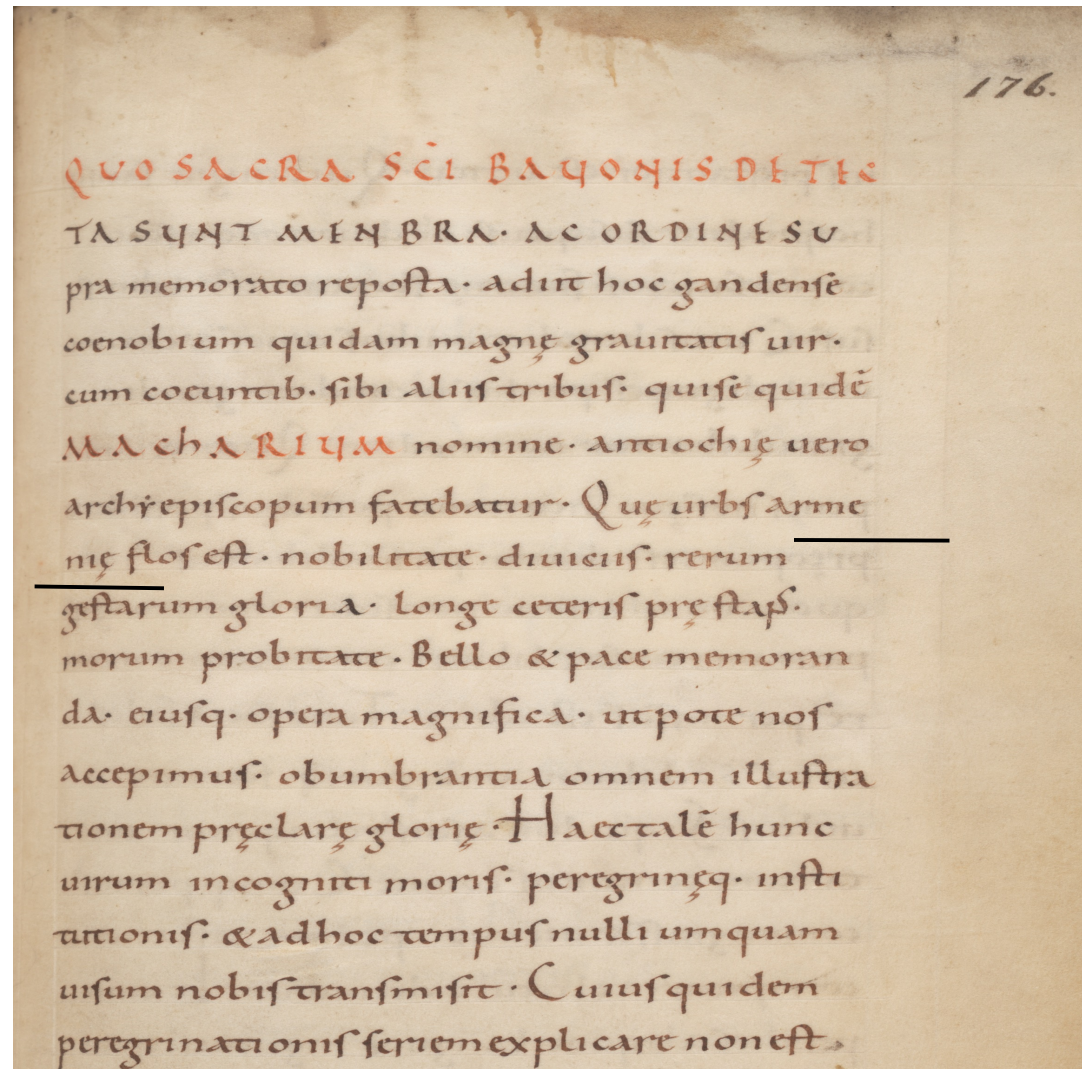 176.
QUO SACRA SC̄I BAVONIS DETEC
TA SUNT MENBRA· AC ORDINE SU
pra memorato reposta· adiit hoc gandense
coenobium quidam magnę grauitatis uir·
cum coeuntib· sibi aliis tribus· qui se quidē
MAChARIUM nomine· antiochię uero
archyepiscopum fatebatur· Quę urbs arme
nię flos est· nobilitate· diuiciis· rerum
gestarum gloria· longe ceteris pręstaṕ·
morum probitate· Bello & pace memoran
da· eiusq· opera magnifica· ut pote nos
accepimus· obumbrantia omnem illustra
tionem pręclarę glorię· Haec talē hunc
uirum incogniti moris· peregrinęq· insti
tutionis· & ad hoc tempus nulli umquam
uisum nobis transmisit· Cuius quidem
peregrinationis seriem explicare non est·